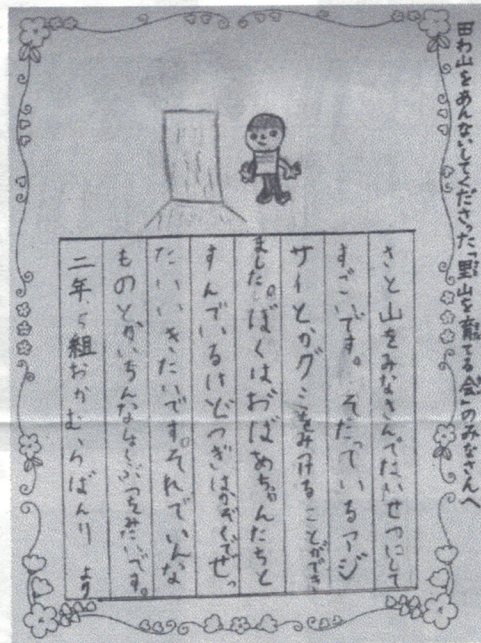 田わ山をあんないしてくださった「野山を育てる会」のみなさんへ
さと山をみなさんでたいせつにして
すごいです。そだっているアージ
サイとかグミをみつけることができ
ました。ばくはおばあちゃんたちと
すんでいるけどつぎはかぞくでぜっ
たいいきたいです。それでいんな
ものとかいろんなしょくぶつをみたいです。
二年ろ組おかむら より